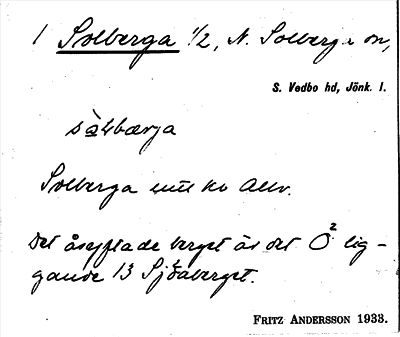 1 Solberga 1/2, N. Solberga sn,
S. Vedbo hd, Jönk. l.
Solberga
Det åsyftade berget är det Ö² lig-
gande 13 Sjöaberget.
FRITZ ANDERSSON 1933.